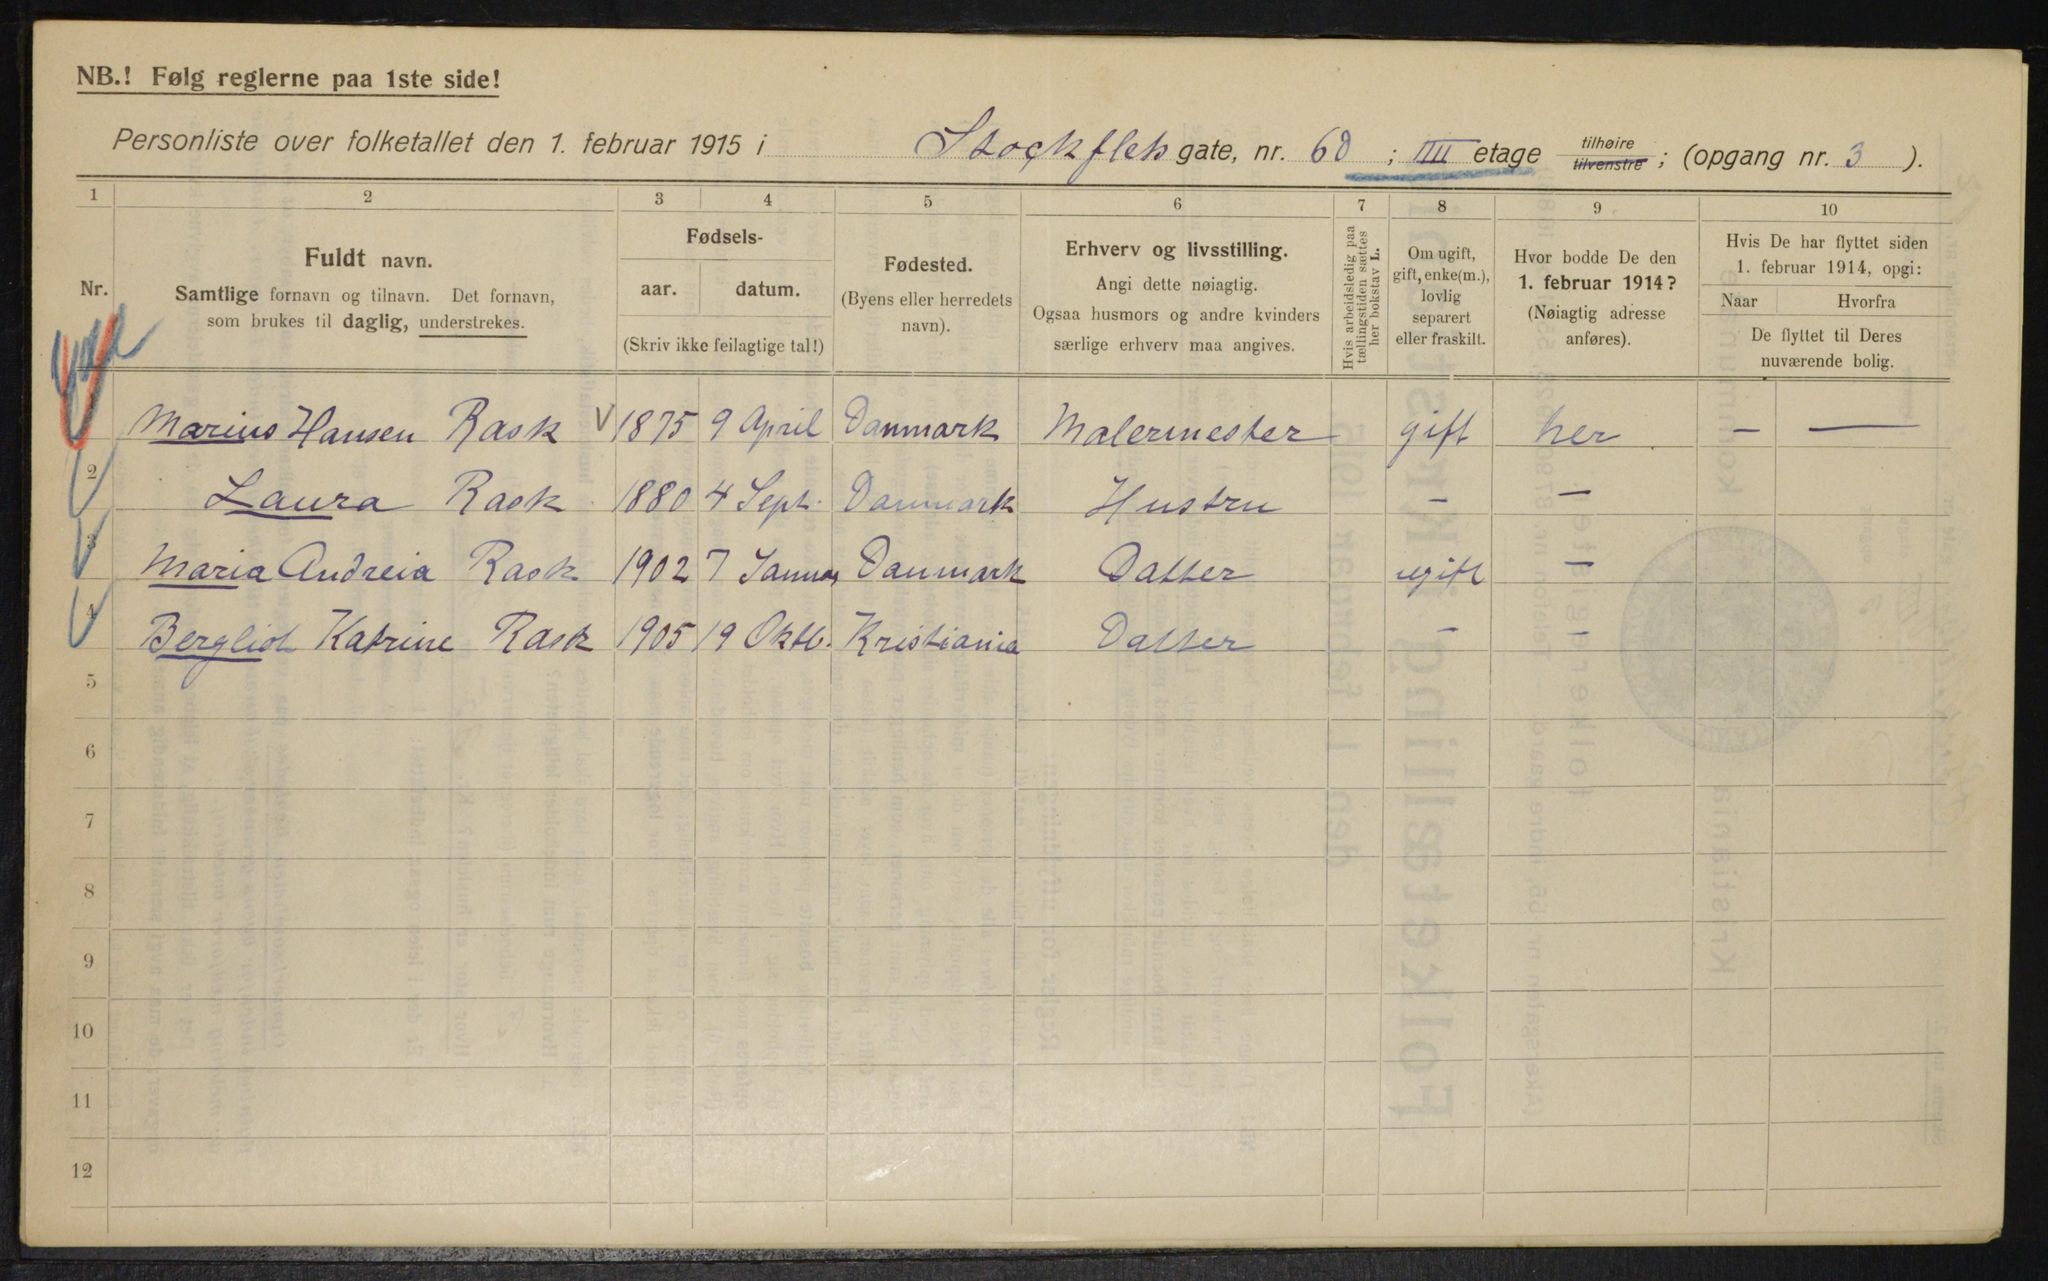 NB.! Følg reglerne paa 1ste side!
Personliste over folketallet den 1. februar 1915 i Stockfleths gate, nr. 60 ; IIII etage tilhøire tilvenstre ; (opgang nr. 3 ).
1 2 3 4 5 6 7 8 9 10
Nr.
Fuldt navn.
Samtlige fornavn og tilnavn. Det fornavn,
som brukes til daglig, understrekes.
Fødsels-
aar. datum.
(Skriv ikke feilagtige tal!)
Fødested.
(Byens eller herredets
navn).
Erhverv og livsstilling.
Angi dette nøiagtig.
Ogsaa husmors og andre kvinders
særlige erhverv maa angives.
Hvis arbeidsledig paa
tællingstiden sættes
her bokstav L.
Om ugift,
gift, enke(m.),
lovlig
separert
eller fraskilt.
Hvor bodde De den
1. februar 1914?
(Nøiagtig adresse
anføres).
Hvis De har flyttet siden
1. februar 1914, opgi:
Naar Hvorfra
De flyttet til Deres
nuværende bolig.
Marius Hansen Rask 1875 9 April Danmark Malermester gift her — —
2 Laura Rask 1880 4 Sept. Danmark Hustru — —
3 Maria Andreia Rask 1902 7 Januar Danmark Datter ugift —
4 Bergliot Katrine Rask 1905 19 Oktb. Kristiania Datter — —
5
6
7
8
9
10
11
12